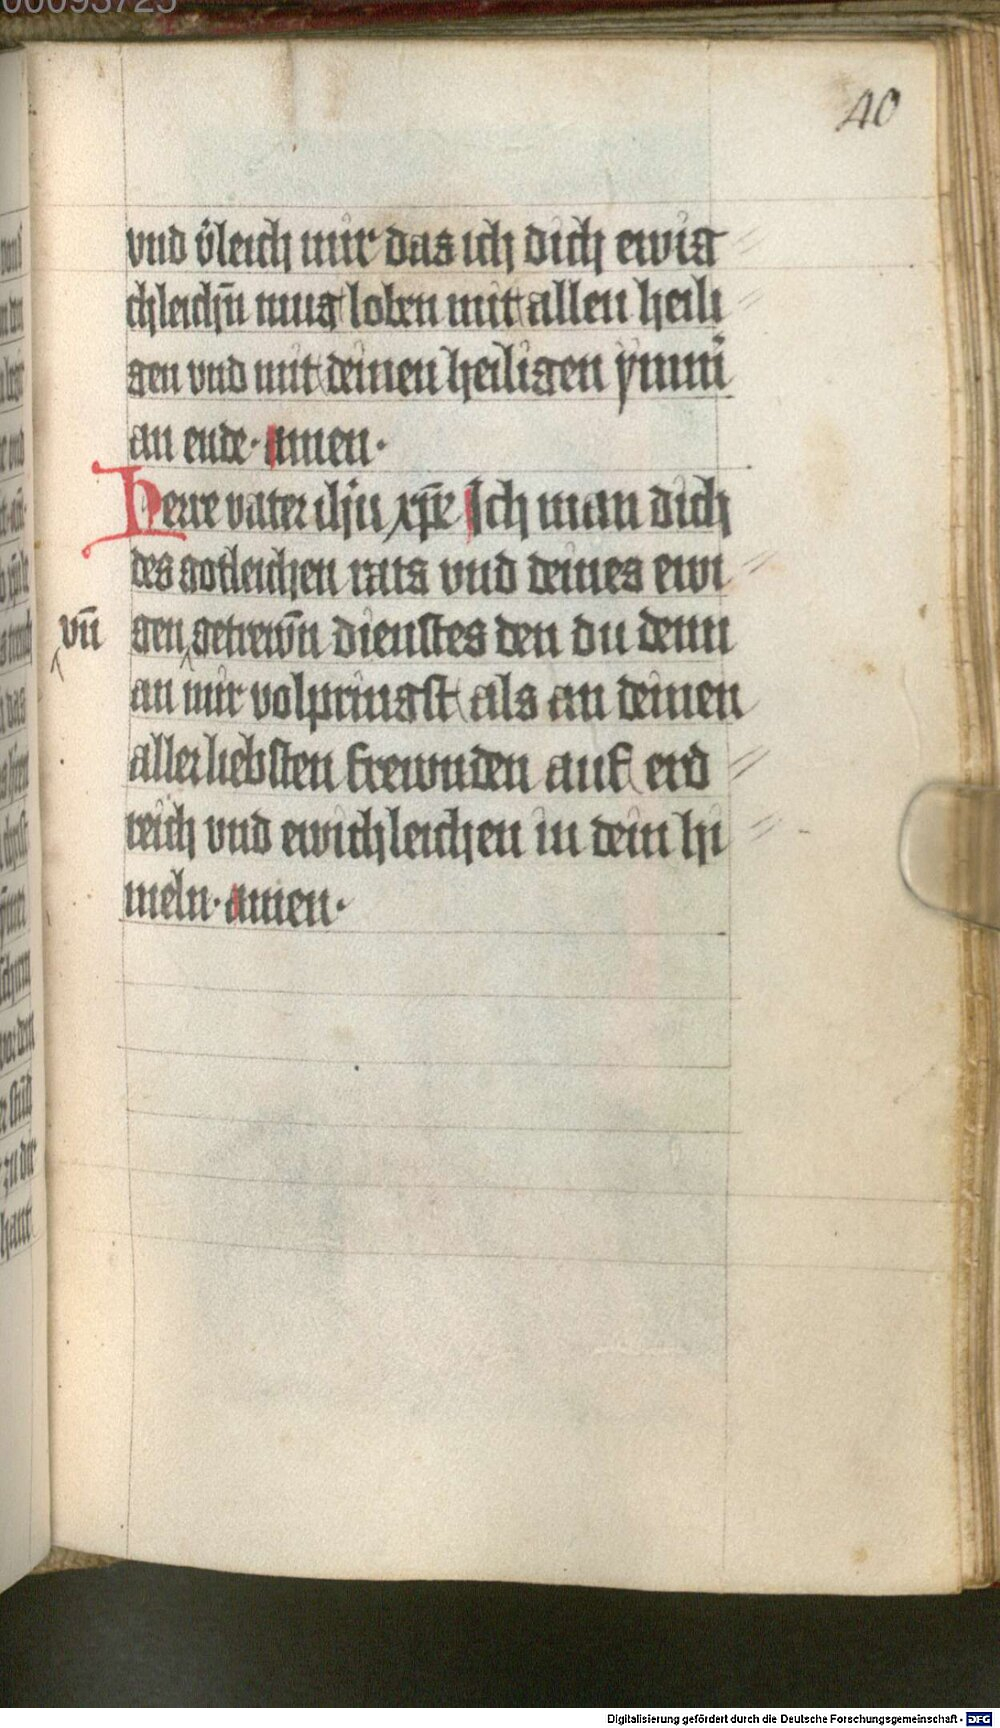 40
vnd v̓leich mir das ich dich ewig
chleichn̄ mug loben mit allen heili
gen vnd mit deinen heiligen ymm̄
an ende · amen ·
Herre vater ih̄u xp̄e Ich man dich
des gotleichen rats vnd deines ewi
vn̄ gen getrewn̄ dienstes den du denn
an mir volpringst als an deinen
allerliebsten frewnden auf erd
reich vnd ewichleichen in dein hi
meln · amen ·
Digitalisierung gefördert durch die Deutsche Forschungsgemeinschaft - DFG